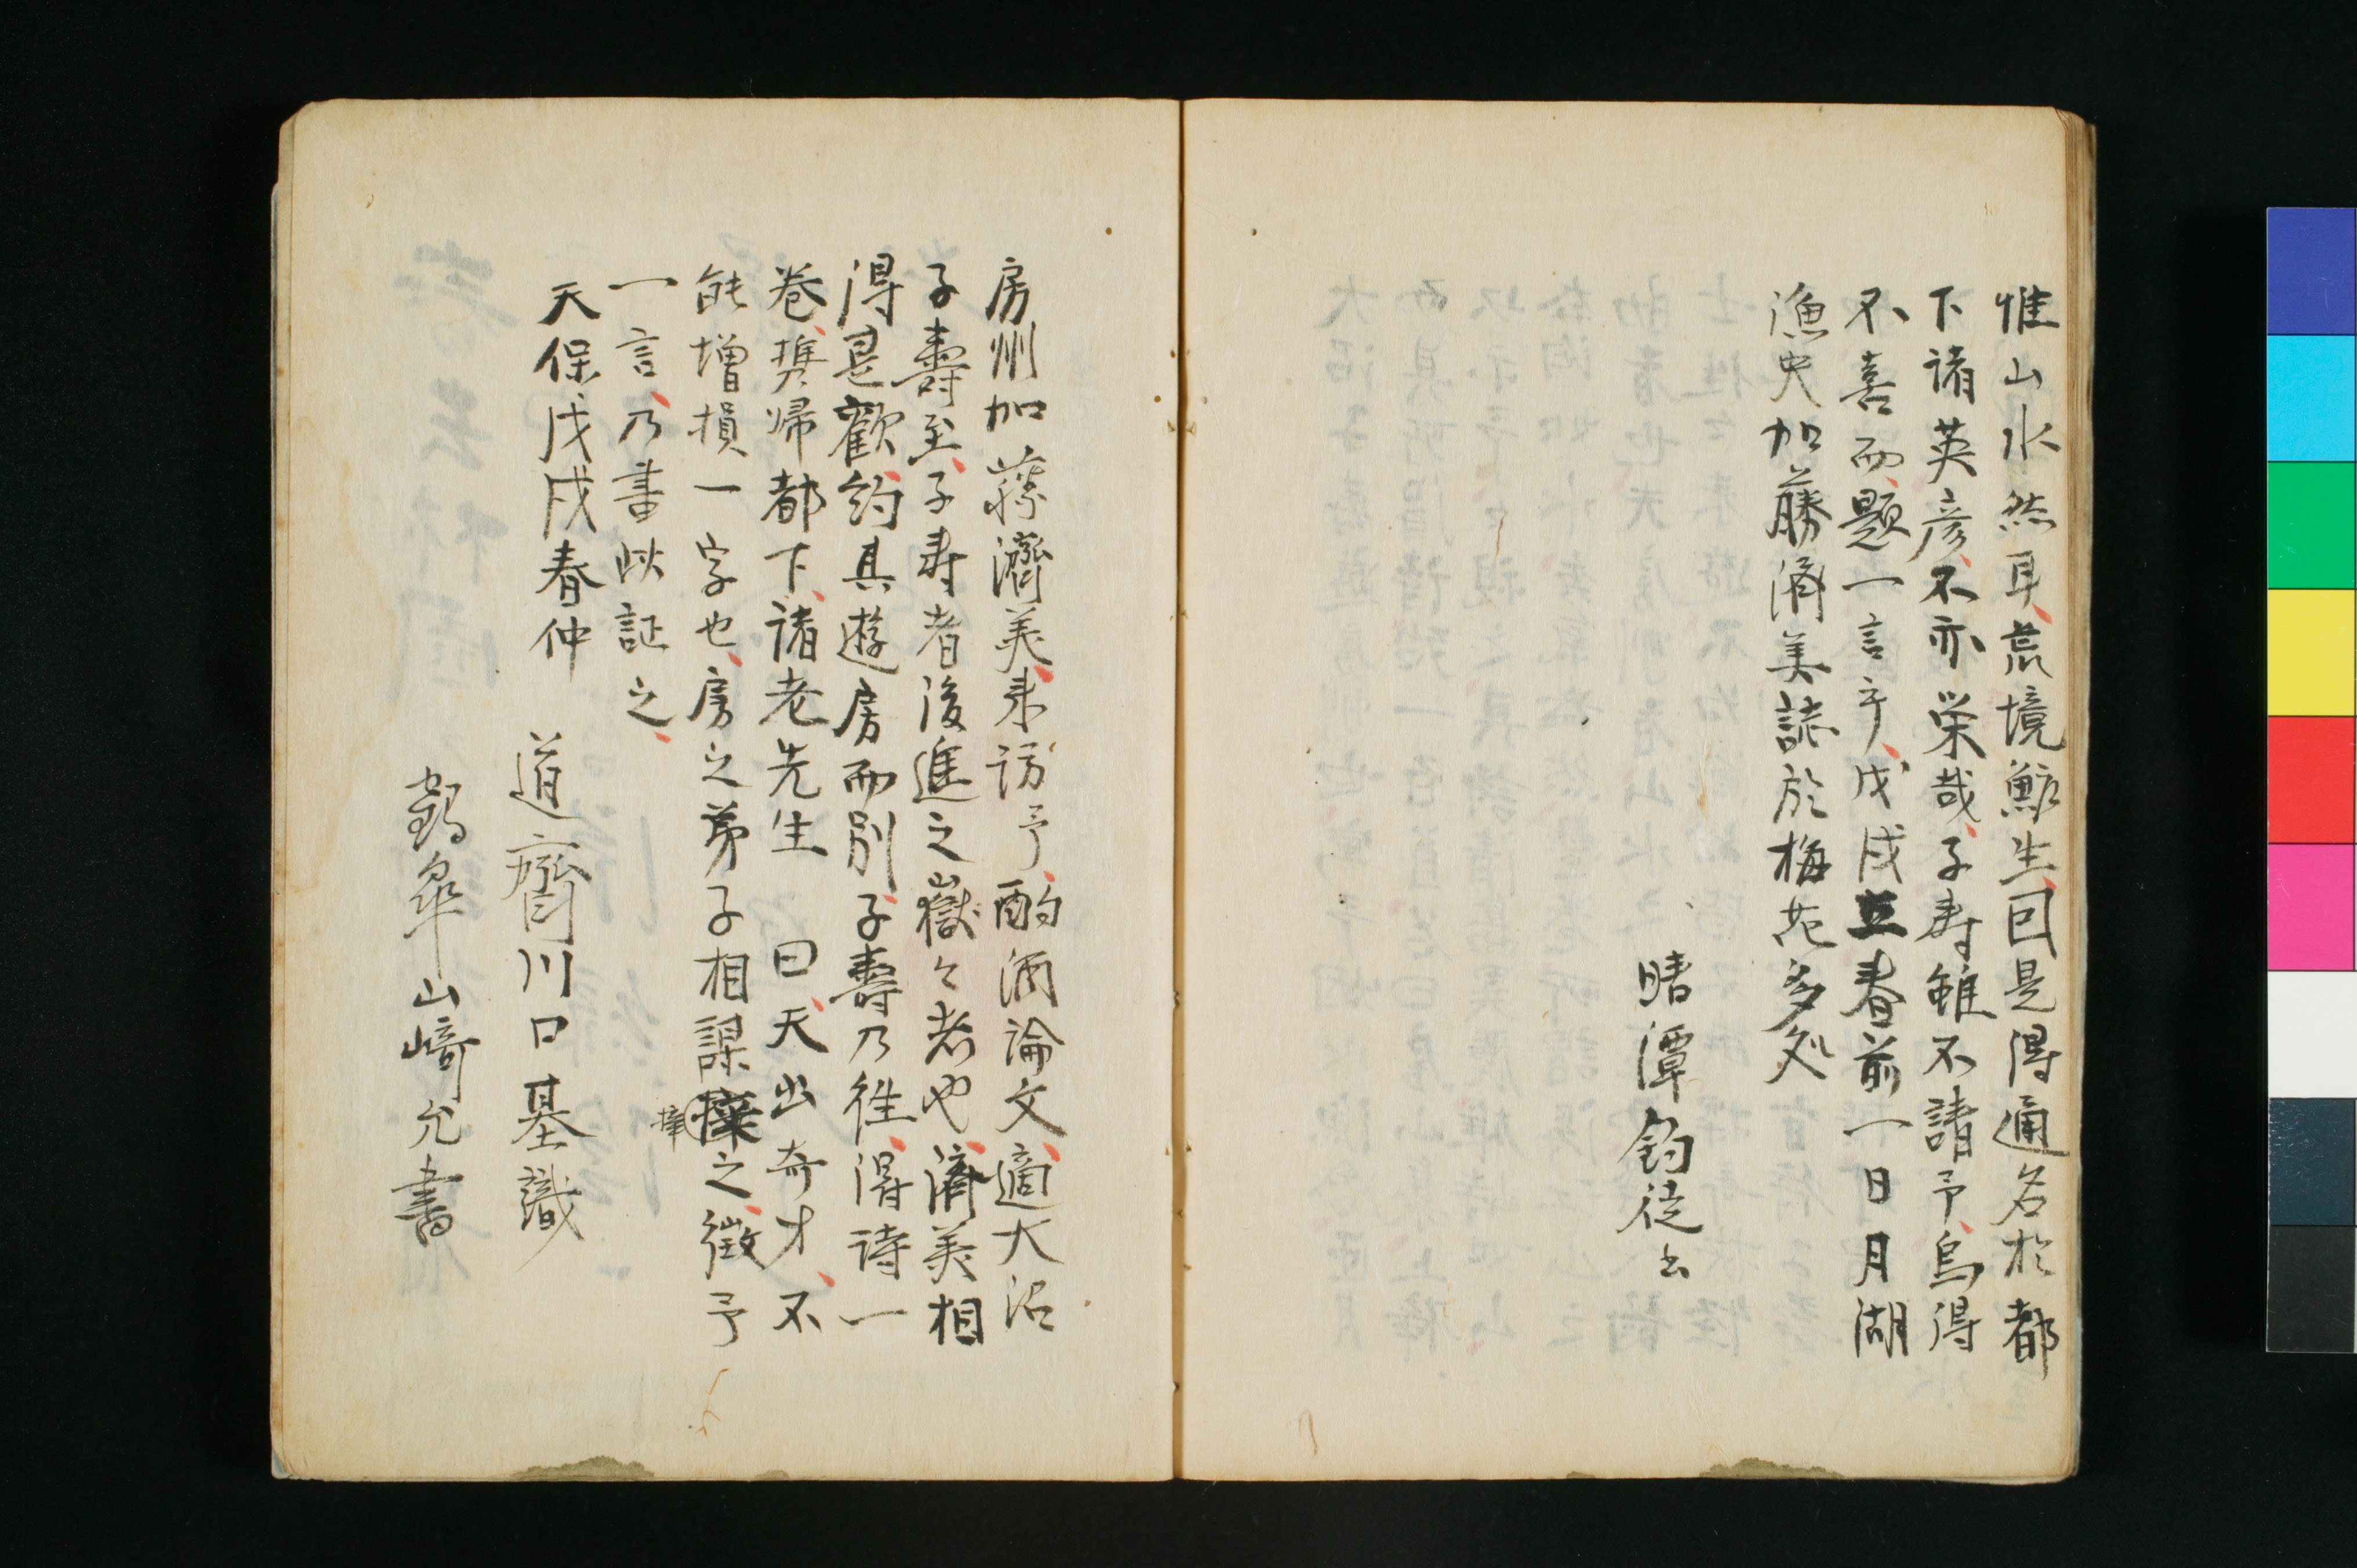 惟山水然耳、荒境鯨生、回是得通名於都
下諸英彦、不亦栄哉、子寿雖不請予、烏得
不喜而、題一言乎、戊戌立春前一日月湖
漁史加藤済美誌於梅花多処
晴潭釣徒云
房州加藤濟美、来訪予、酌酒論文、適大沼
子壽至、子寿者後進之嶽々者也、濟美相
得是歡、約其遊房而別、子壽乃往、得詩一
巻、携帰都下、諸老先生曰、天出奇才、不
能増損一字也、房之弟子相謀梓之、徴予
梓
一言、乃書此証之、
天保戊戌春仲
道齋川口基識
鶴皐山﨑允書